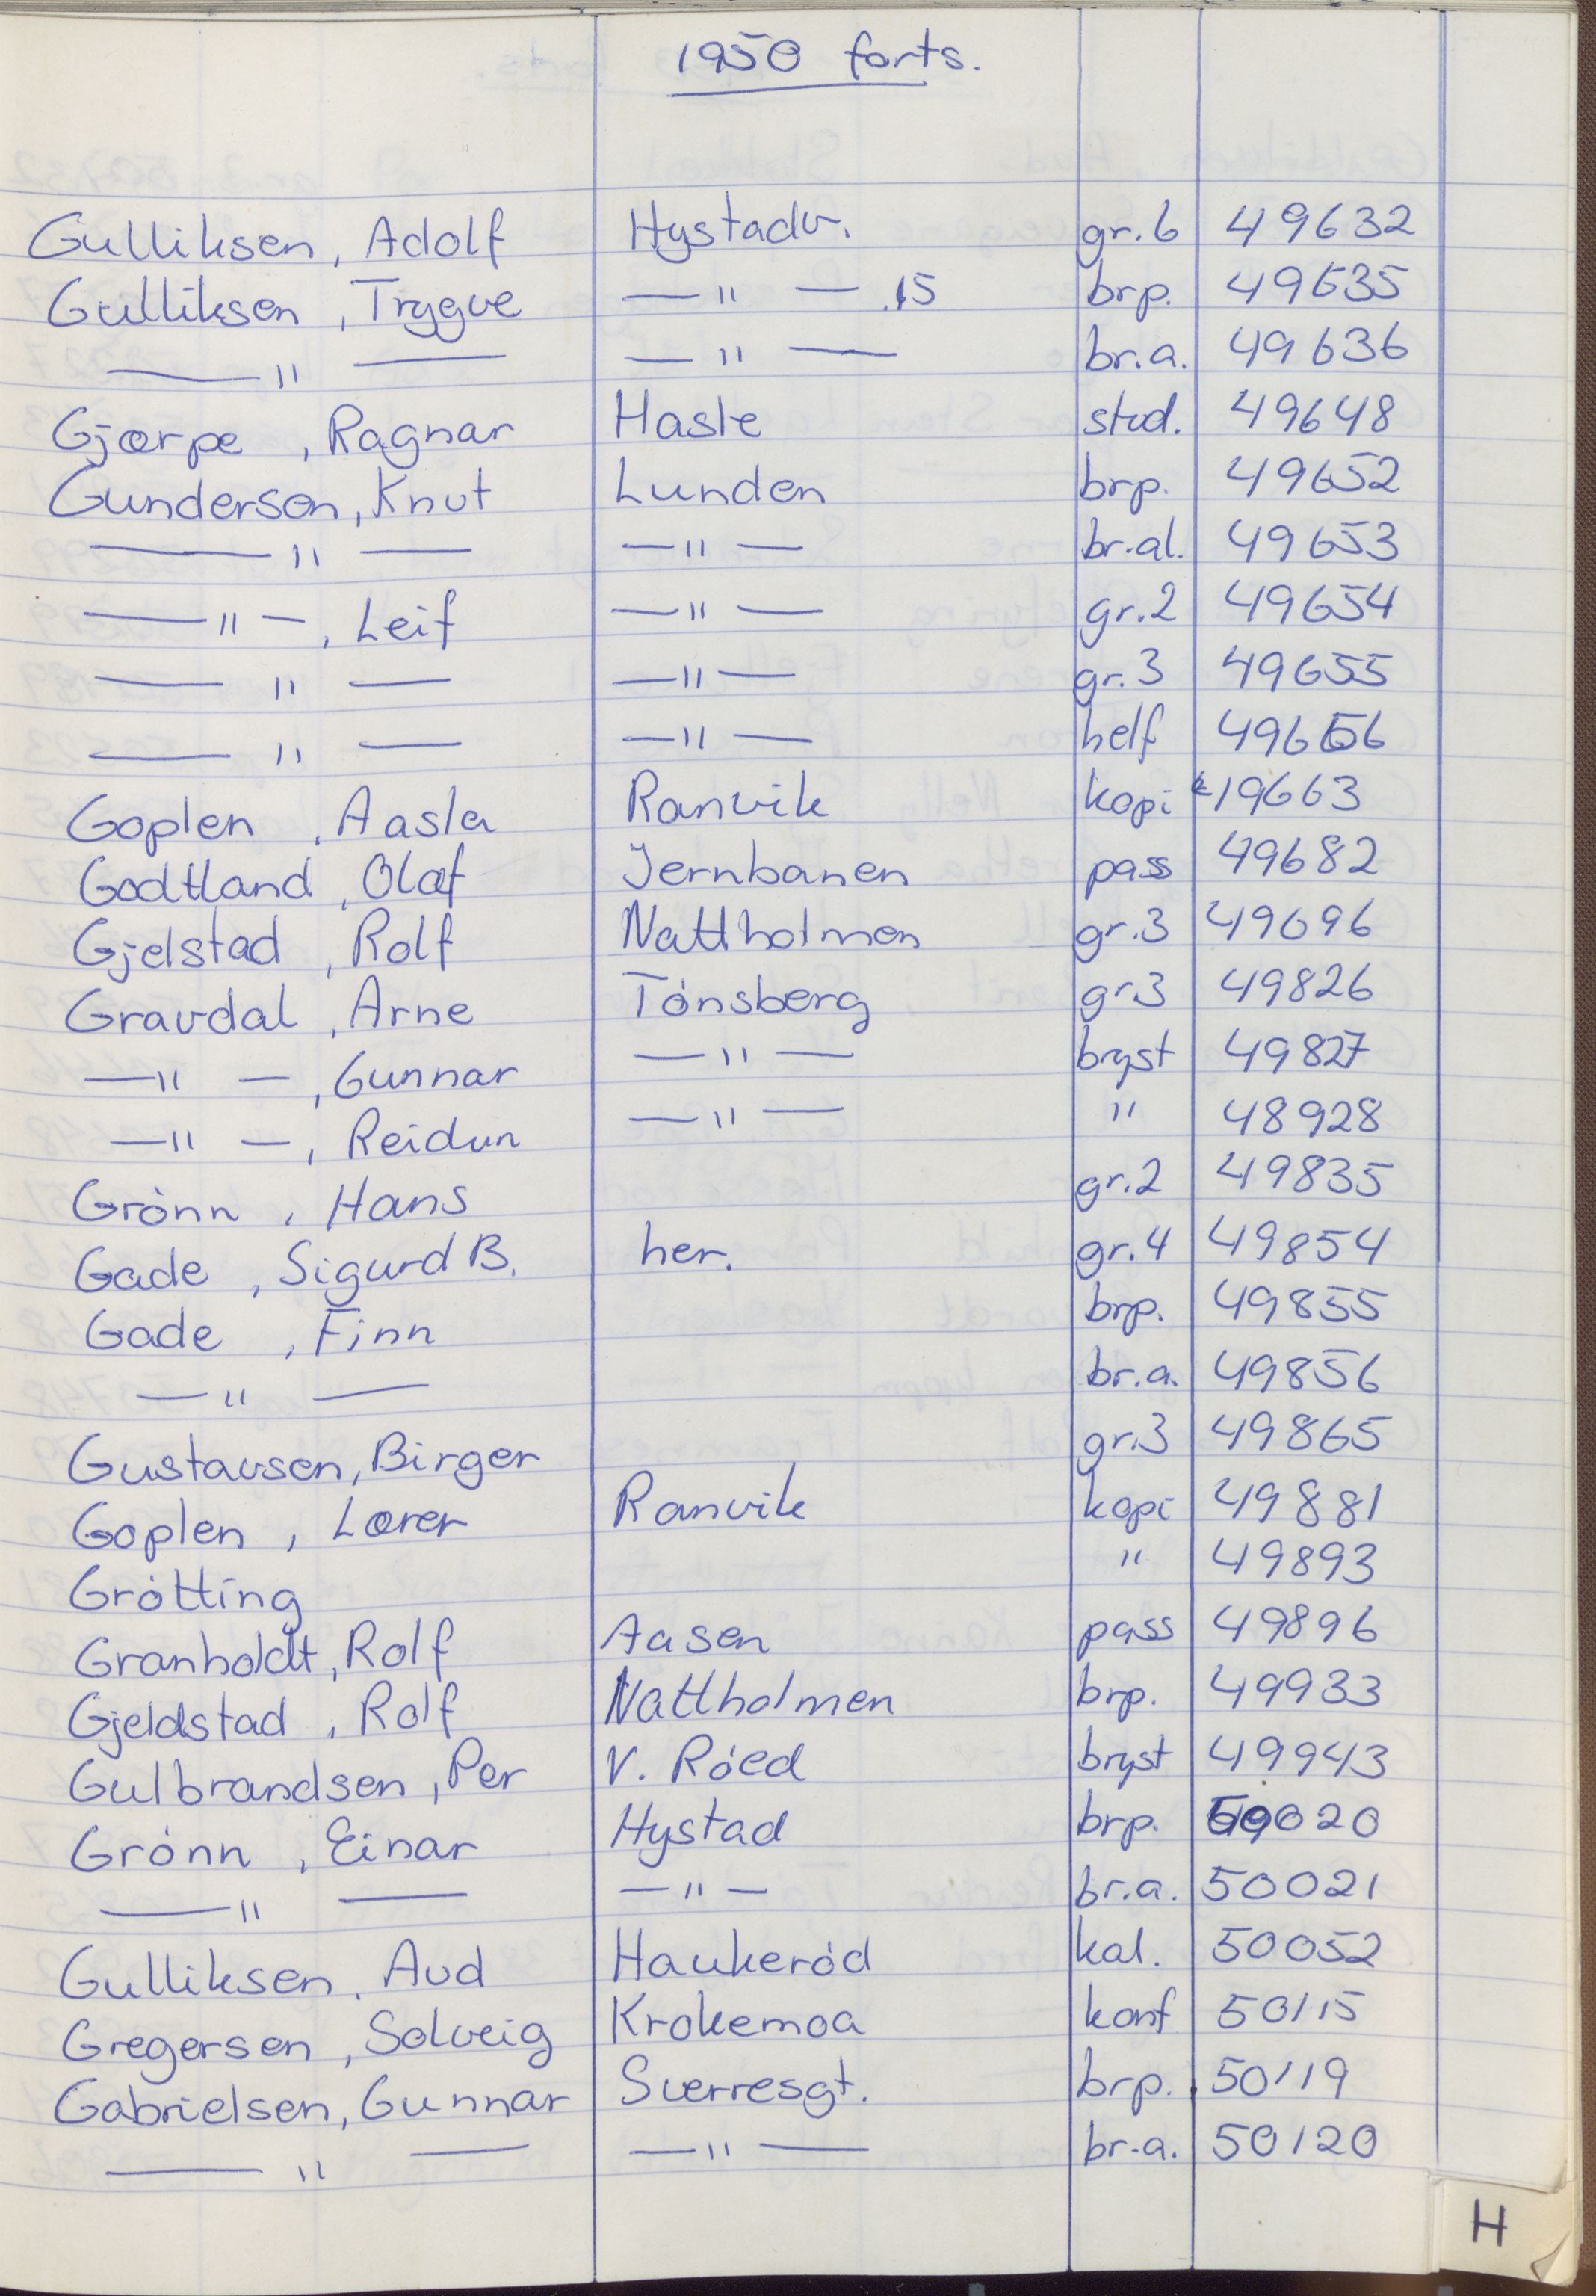 1950 forts.
Gulliksen, Adolf Hystadv. gr.6 49632
Gulliksen, Trygve —"— 15 brp. 49635
—"— —"— br.a. 49636
Gjærpe, Ragnar Hasle stud. 49648
Gundersen, Knut Lunden brp. 49652
—"— —"— br.al. 49653
—"—, Leif —"— gr.2 49654
—"— —"— gr.3 49655
—"— —"— helf 49656
Goplen, Aasla Ranvik kopi 49663
Godtland, Olaf Jernbanen pass 49682
Gjelstad, Rolf Nattholmen gr.3 49696
Gravdal, Arne Tönsberg gr.3 49826
—"—, Gunnar —"— bryst 49827
—"—, Reidun —"— " 48928
Grönn, Hans gr.2 49835
Gade, Sigurd B. her. gr.4 49854
Gade, Finn brp. 49855
—"— br.a. 49856
Gustavsen, Birger gr.3 49865
Goplen, Lærer Ranvik kopi 49881
Grötting " 49893
Granholdt, Rolf Aasen pass 49896
Gjeldstad, Rolf Nattholmen brp. 49933
Gulbrandsen, Per V. Röed bryst 49943
Grönn, Einar Hystad brp. 50020
—"— —"— br.a. 50021
Gulliksen, Aud Haukeröd kal. 50052
Gregersen, Solveig Krokemoa konf 50115
Gabrielsen, Gunnar Sverresgt. brp. 50119
—"— —"— br.a. 50120
H